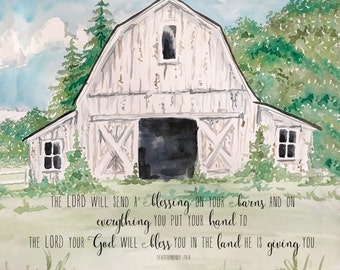 THE LORD WILL SEND A blessing ON YOUR barns AND ON
everything YOU PUT YOUR hand TO
THE LORD YOUR God WILL bless YOU IN THE land HE IS giving YOU
DEUTERONOMY 28:8